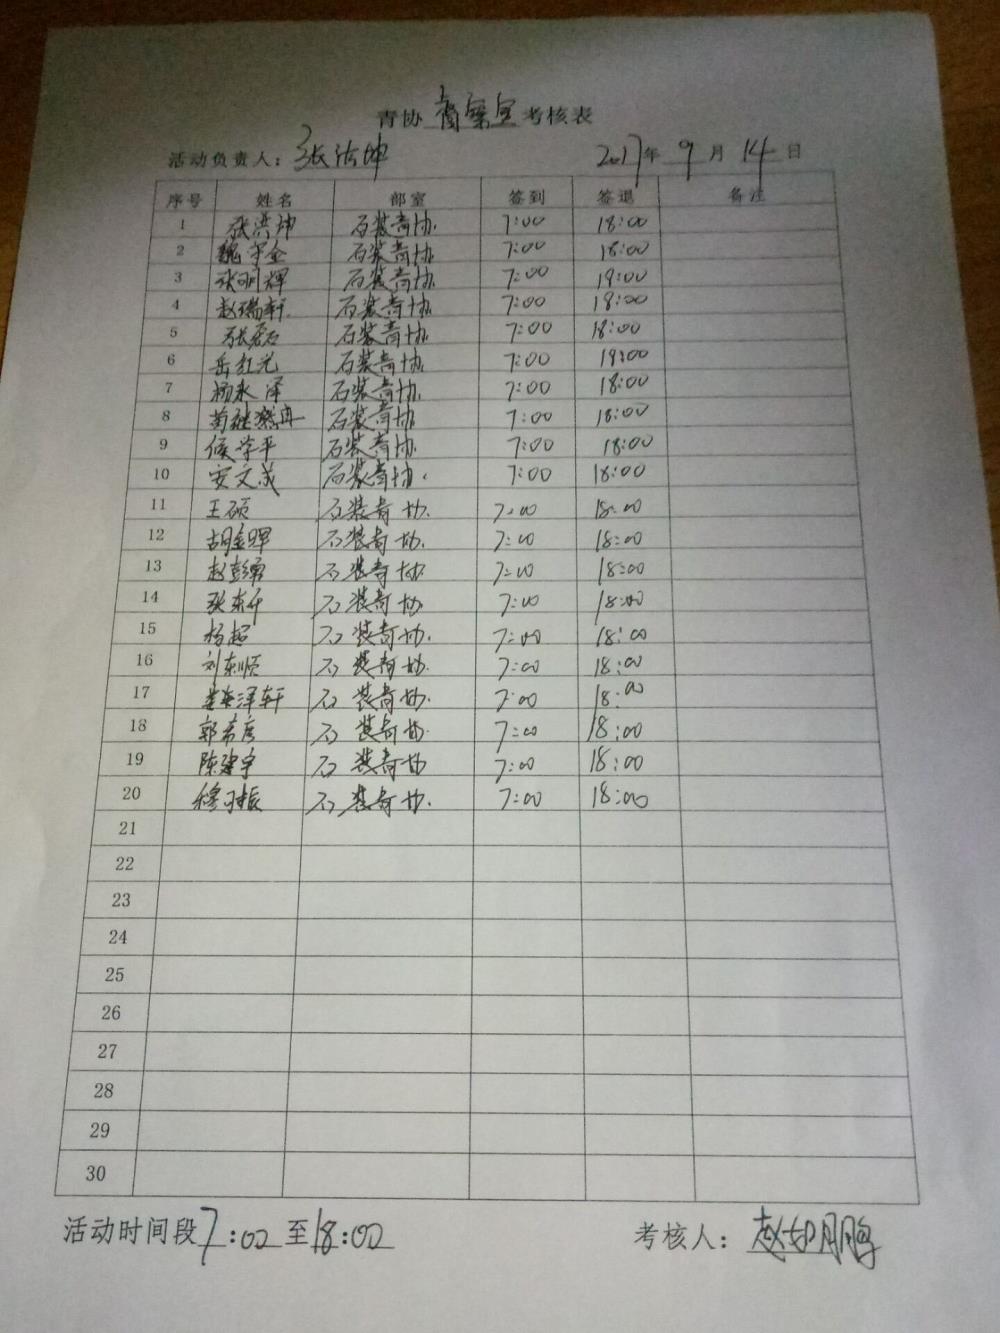 青协 考核表
活动负责人： 张洪坤 2017年 9 月 14 日
序号 姓名 部室 签到 签退 备注
1 张洪坤 石装青协. 7:00 18:00
2 魏宇金 石装青协. 7:00 18:00
3 张明辉 石装青协. 7:00 19:00
4 赵瑞轩 石装青协. 7:00 18:00
5 张磊 石装青协. 7:00 18:00
6 岳红光 石装青协. 7:00 19:00
7 杨永泽 石装青协. 7:00 18:00
8 石装青协 7:00 18:00
9 侯学平 石装青协. 7:00 18:00
10 安文成 石装青协. 7:00 18:00
11 王硕 石装青协. 7:00 18:00
12 胡金晖 石装青协. 7:00 18:00
13 赵彭勇 石装青协. 7:00 18:00
14 张东仟 石装青协. 7:00 18:00
15 杨超 石装青协. 7:00 18:00
16 刘东顺 石装青协. 7:00 18:00
17 泽轩 石装青协. 7:00 18:00
18 郭希彦 石装青协. 7:00 18:00
19 陈建宇 石装青协 7:00 18:00
20 穆习振 石装青协. 7:00 18:00
21
22
23
24
25
26
27
28
29
30
活动时间段 7:00 至 18:00 考核人： 赵如鹏